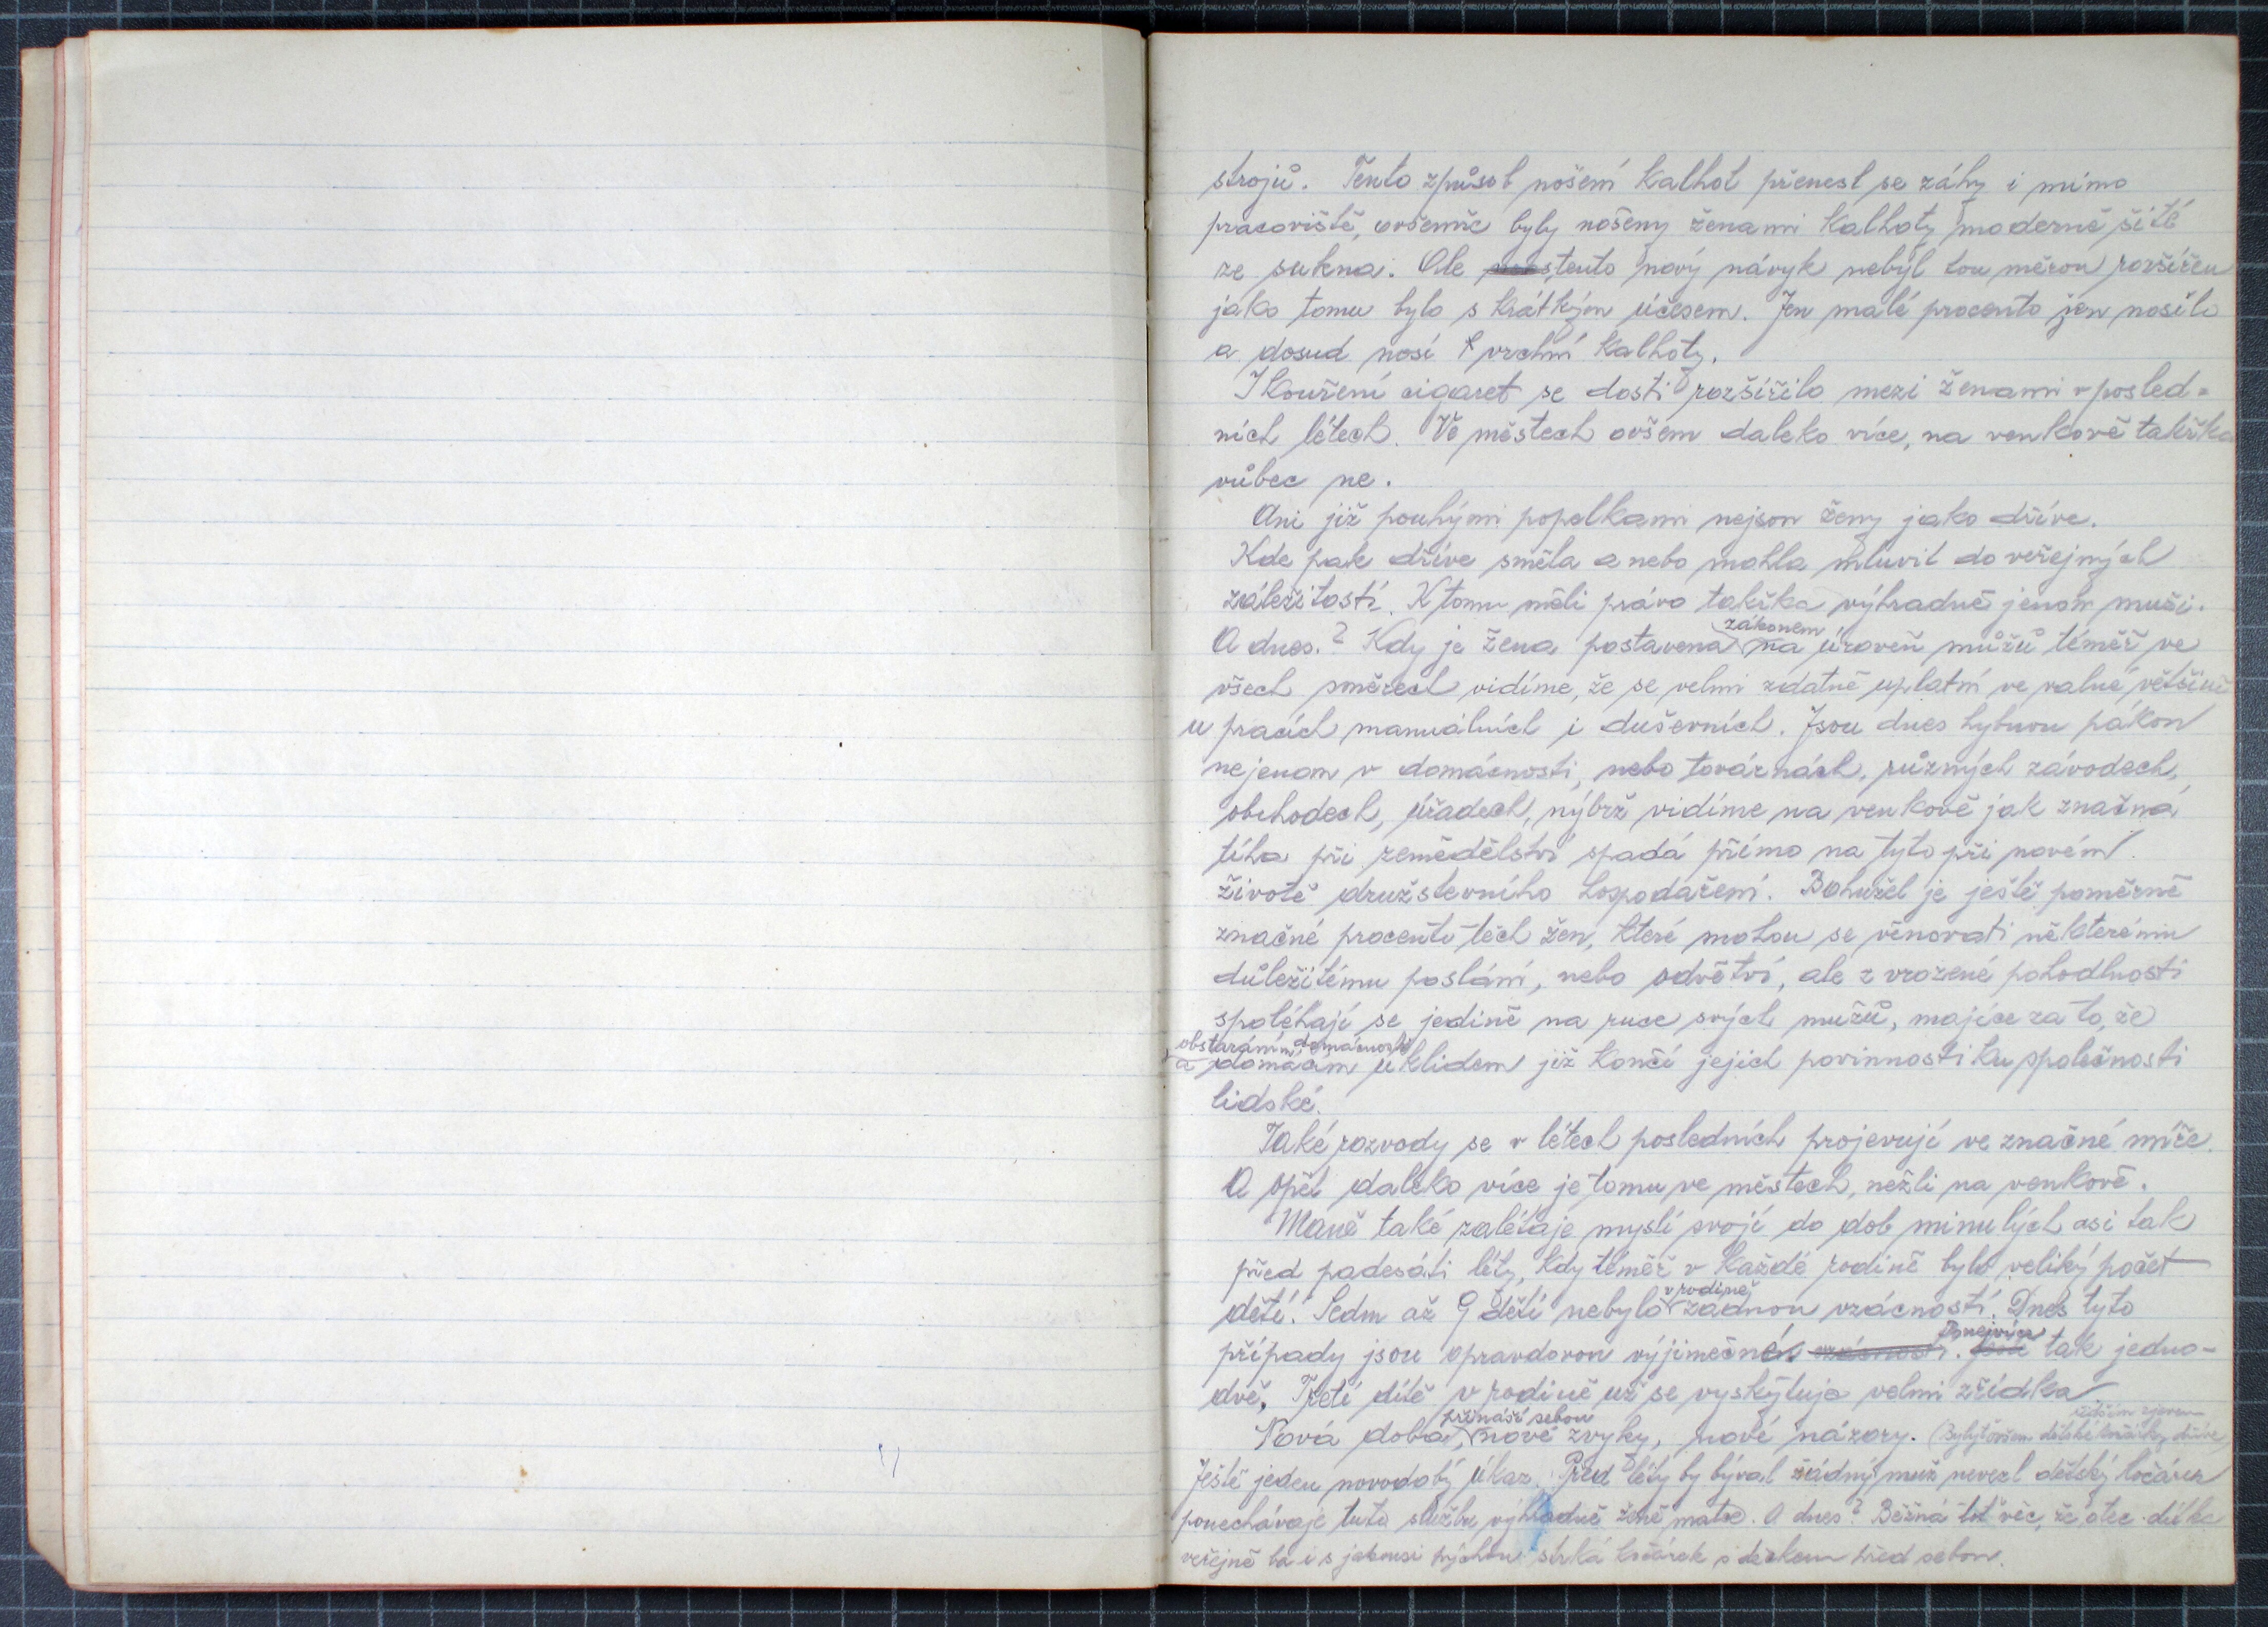 strojů. Tento způsob nošení kalhot přenesl se záhy i mimo
pracoviště, ovšemže byly nošeny ženami kalhoty moderně šité
ze sukna. Ale tento nový návyk nebyl tou měrou rozšířen
jako tomu bylo s krátkým účesem. Jen malé procento žen nosilo
a dosud nosí vrchní kalhoty.
I kouření cigaret se dosti rozšířilo mezi ženami v posled=
ních létech. Ve městech ovšem daleko více, na venkově takřka
vůbec ne.
Ani již pouhými popelkami nejsou ženy jako dříve.
Kde pak dříve směla a nebo mohla mluvit do veřejných
záležitostí. K tomu měli právo takřka výhradně jenom muži.
A dnes? Kdy je žena postavena zákonem na úroveň mužů téměř ve
všech směrech vidíme, že se velmi zdatně uplatní ve valné většině
u pracích manuálních i duševních. Jsou dnes hybnou pákou
nejenom v domácnosti, nebo továrnách, různých závodech,
obchodech, úřadech, nýbrž vidíme na venkově jak značná
tíha při zemědělství spadá přímo na tyto při novém
životě družstevního hospodaření. Bohužel je ještě poměrně
značné procento těch žen, které mohou se věnovati některému
důležitému poslání, nebo odvětví, ale z vrozené pohodlnosti
spoléhají se jedině na ruce svých mužů, majíce za to, že
obstaráním domácnosti
a domácím úklidem již končí jejich povinnosti ku společnosti
lidské.
Také rozvody se v létech posledních projevují ve značné míře.
A opět daleko více je tomu ve městech, nežli na venkově.
Maně také zalétaje myslí svojí do dob minulých asi tak
před padesáti léty, kdy téměř v každé rodině bylo veliký počet
dětí. Sedm až 9 dětí nebylo v rodině žádnou vzácností. Dnes tyto
případy jsou opravdovou výjimečné vzácností. Ponejvíce tak jedno-
dvě. Třetí dítě v rodině už se vyskytuje velmi zřídka
Nová doba, přináší sebou nové zvyky, nové názory. (Byly ovšem dětské kočárky dříve
zjevem
Ještě jeden novodobý úkaz. Před léty by býval žádný muž nevezl dětský kočárek
ponechávaje tuto službu výhradně ženě matce. A dnes? Běžná toť věc, že otec dítka
veřejně ba i s jakousi pýchou strká kočárek s děckem před sebou.